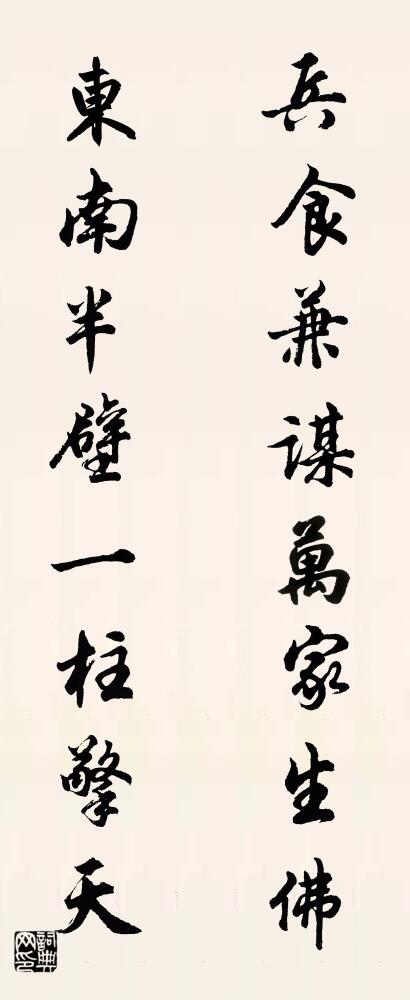 兵食兼謀萬家生佛
東南半壁一柱擎天
詞典
网印